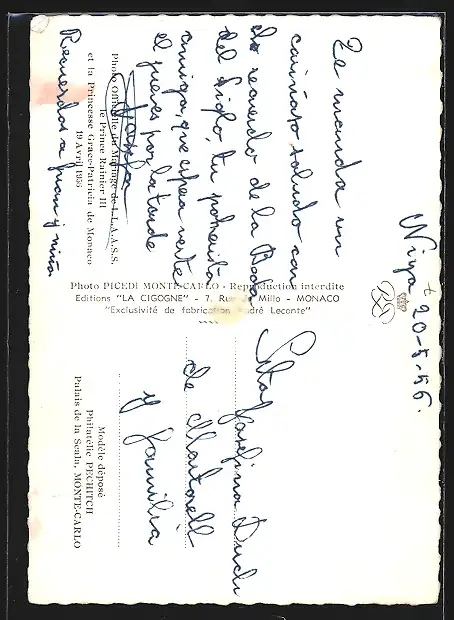 Niza 20-5-56.
Te manda un
cariñoso saludo con
el recuerdo de la Boda
del Siglo, tu
amiga, que espera verte
el jueves por la tarde
Recuerdos a
Photo Officielle du Mariage de L.L.A.A.S.S.
le Prince Rainier III
et la Princesse Grace-Patricia de Monaco
19 Avril 1956
Photo PICEDI MONTE-CARLO - Reproduction interdite
Editions "LA CIGOGNE" - 7, Rue de Millo - MONACO
"Exclusivité de fabrication André Leconte"
Josefina
de Martorell
y familia
Modèle déposé
Philatélie PECHITCH
Palais de la Scala, MONTE-CARLO